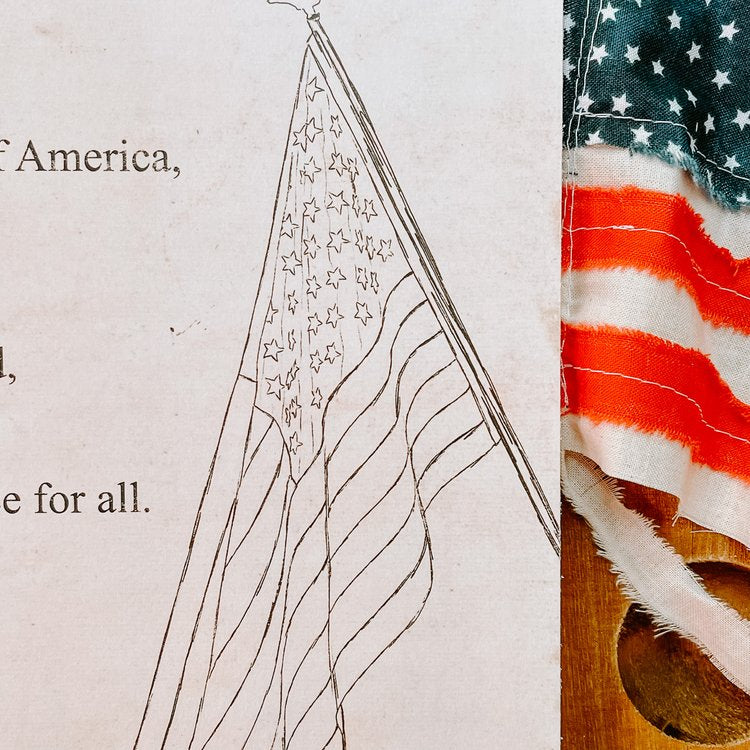 f America,
,
e for all.